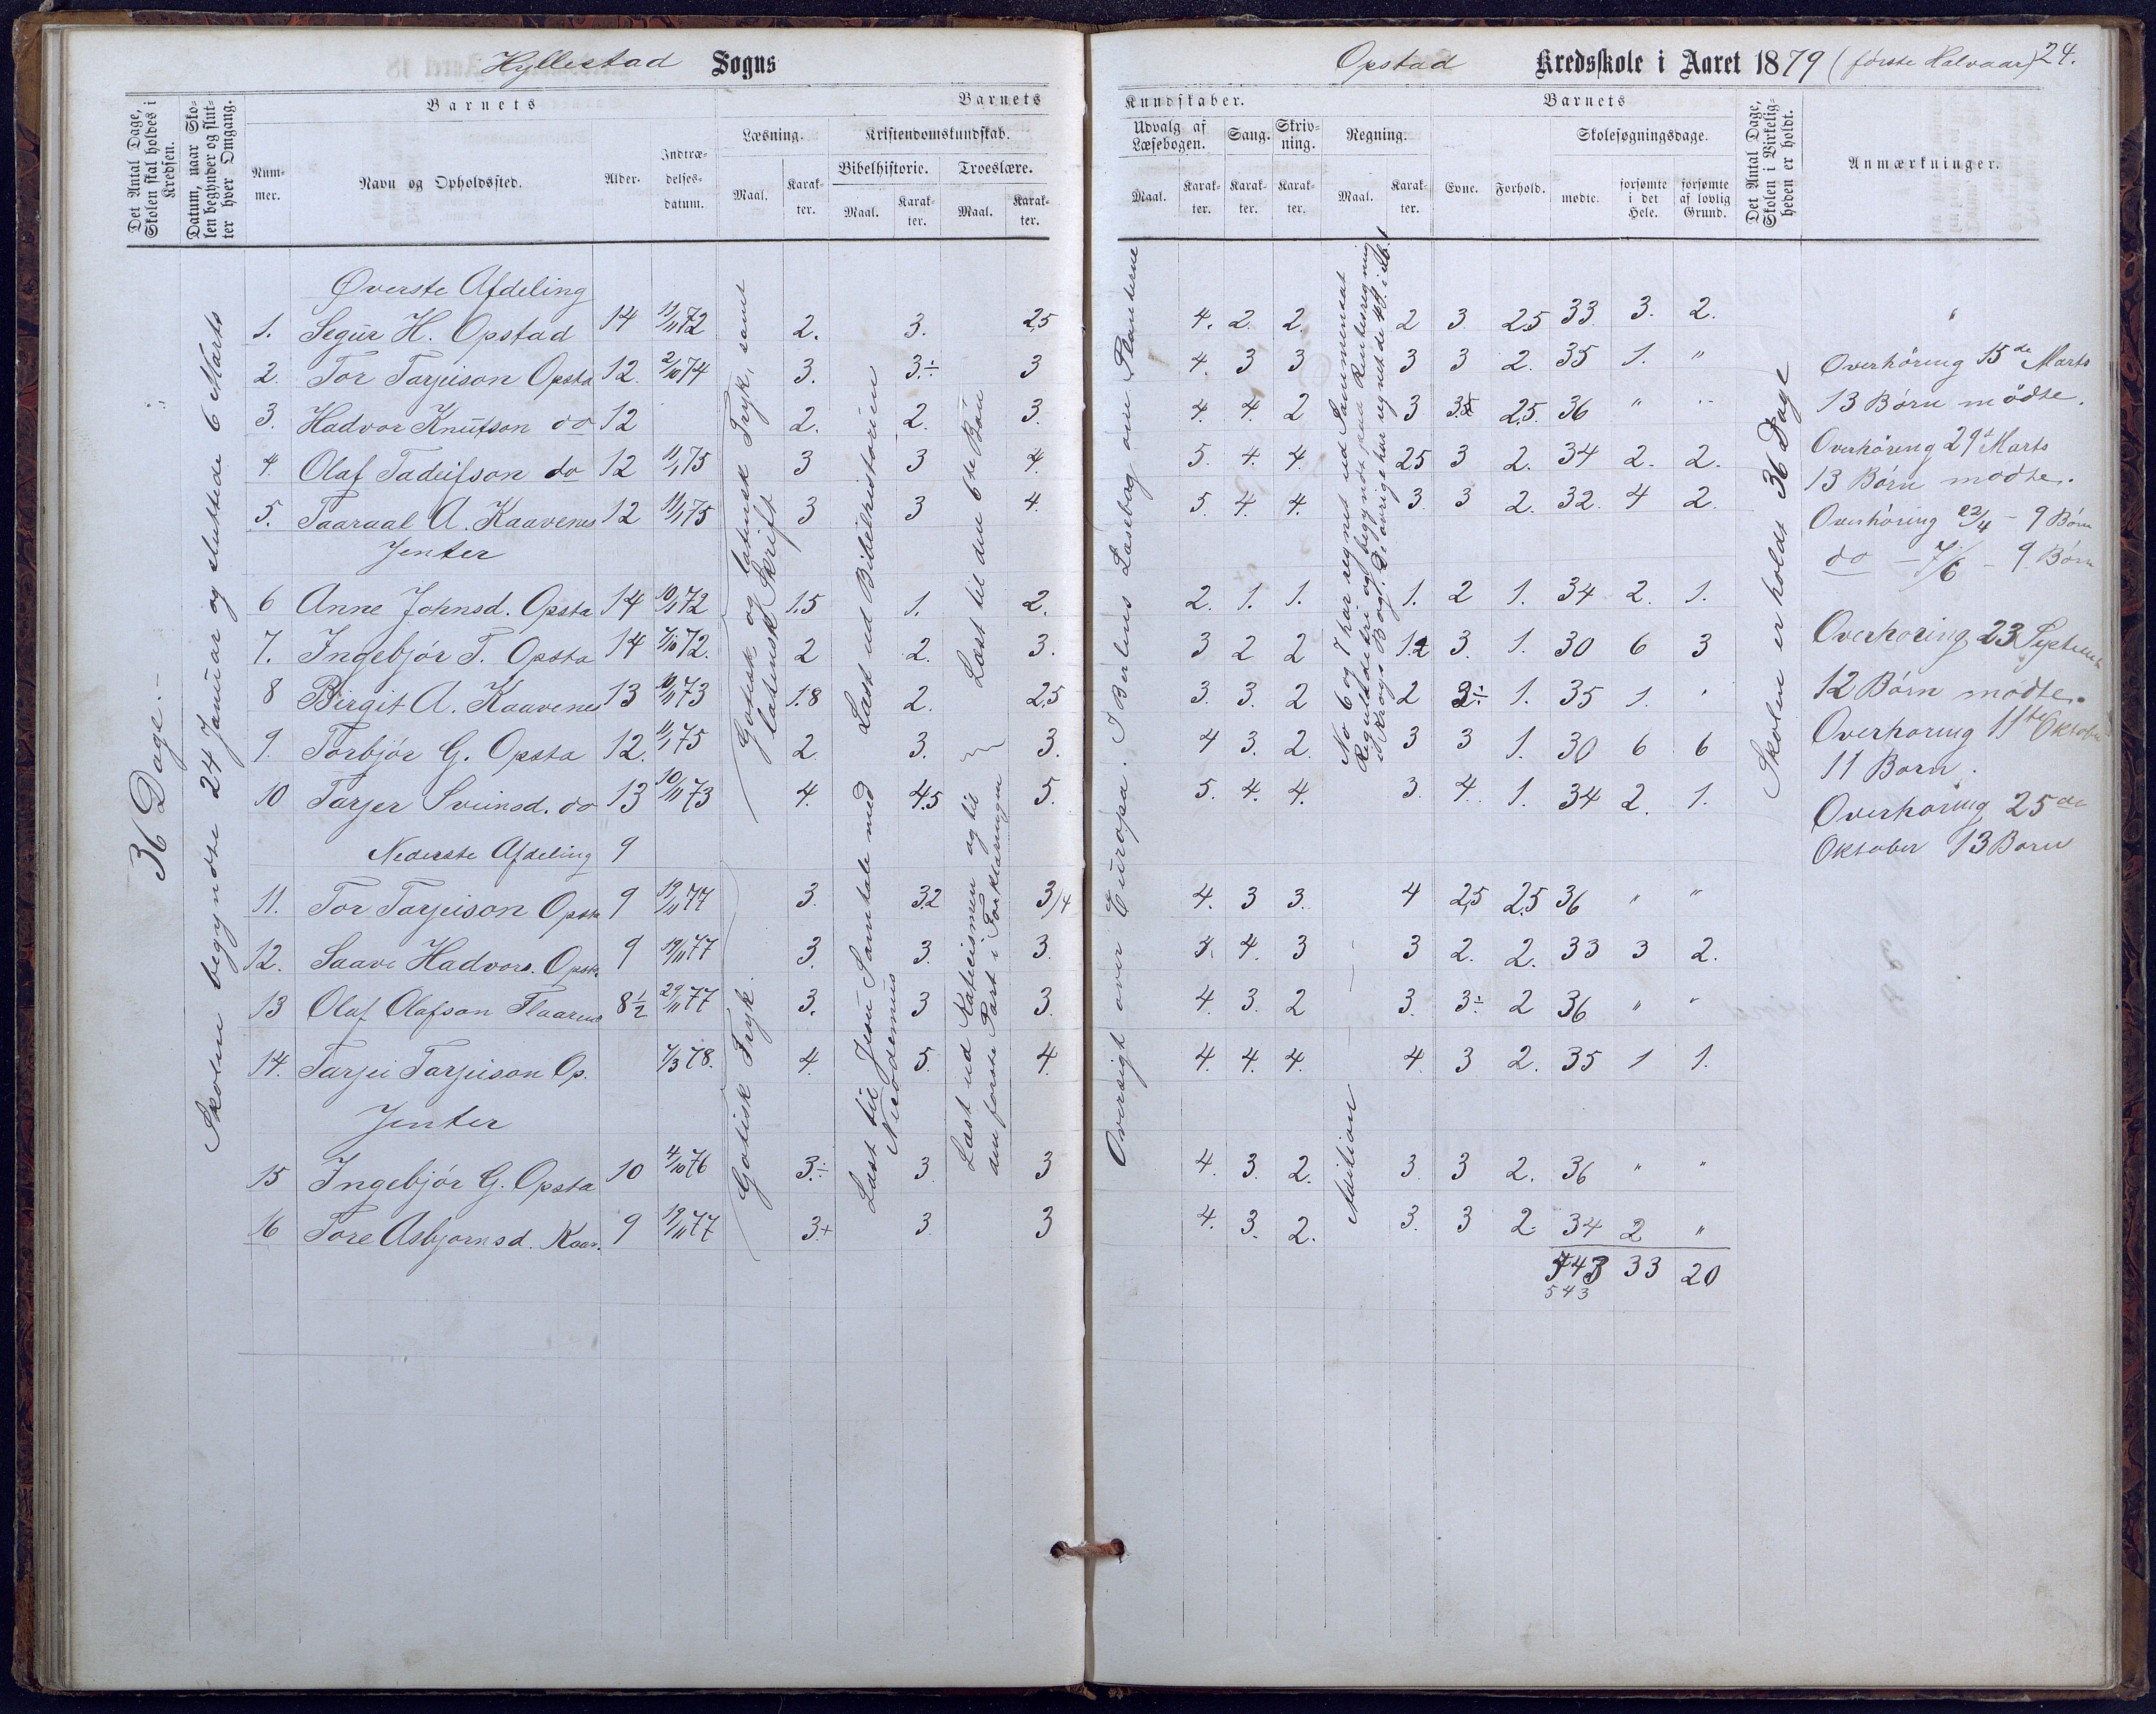 Hyllestad Sogns
Opstad Kredsskole i Aaret 1879 (første Halvaar) 24.
Det Antal Dage, Skolen skal holdes i Kredsen.
Datum, naar Skolen begynder og slutter hver Omgang.
Barnets
Nummer.
Navn og Opholdssted.
Alder.
Indtrædelsesdatum.
Barnets
Læsning.
Kristendomskundskab.
Bibelhistorie.
Troeslære.
Maal.
Karakter.
Maal.
Karakter.
Maal.
Karakter.
Kundskaber.
Udvalg af Læsebogen.
Sang.
Skrivning.
Regning.
Maal.
Karakter.
Karakter.
Karakter.
Maal.
Karakter.
Barnets
Evne.
Forhold.
Skolesøgningsdage.
mødte.
forsømte i det Hele.
forsømte af lovlig Grund.
Det Antal Dage, Skolen i Virkeligheden er holdt.
Anmærkninger.
36 Dage.-
Skolen begyndte 24 Januar og sluttede 6 Marts
Øverste Afdeling
1. Segur H. Opstad 14 11/11 72 2. 3. 2,5 4. 2. 2. 2 3 2.5 33 3. 2.
2. Tor Tarjeison Opsta 12. 2/10 74 3. 3.÷ 3 4. 3 3 3 3 2. 35 1. "
3. Hadvor Knutson do 12 2. 2. 3. 4. 4. 2 3 3.5 2.5. 36 " "
4 Olaf Tadeifson do 12 11/1 75 3 3 4. 5. 4. 4. 2.5 3 2. 34 2. 2.
5. Taaraal A. Kaavenes 12 11/1 75 3 3 4. 5. 4. 4. 3. 3 2. 32. 4 2.
Jenter
6 Anne Johnsd. Opsta 14 10/1 72 1.5 1. 2. 2. 1. 1. 1. 2 1. 34 2. 1.
7. Ingebjør T. Opsta 14 7/10 72. 2 2. 3. 3 2 2 1.2 3. 1. 30 6 3
8 Birgit A. Kaavenes 13 10/11 73 1.8 2. 2,5 3. 3. 2 2 3÷ 1. 35 1.
9. Torbjør G. Opsta 12. 11/1 75 2 3. 3. 4 3. 2. 3 3 1. 30 6 6
10 Tarjer Sveinsd. do 13 10/11 73 4. 4.5 5. 5. 4. 4. 3. 4. 1. 34 2. 1.
Nederste Afdeling 9
11. Tor Tarjeison Opsta 9 19/11 77 3. 3.2 3/4 4. 3 3. 4 2,5 2.5 36 " "
12. Saave Hadvors. Opsta 9 19/11 77 3. 3. 3. 3. 4. 3 3 2. 2. 33 3 2.
13 Olaf Olafson Flaarend 8½ 29/11 77 3. 3 3. 4. 3. 2 3. 3÷ 2 36 " "
14. Tarjei Tarjeison Op. 7/3 78. 4. 5. 4. 4. 4. 4. 4. 3 2. 35 1 1.
Jenter
15 Ingebjør G. Opsta 10 4/10 76 3.÷ 3. 3 4. 3. 2. 3. 3 2. 36 " "
16 Tore Asbjørnsd. Kaav. 9 19/11 77 3.+ 3. 3 4. 3. 2. 3. 3 2. 34 2 "
743 33 20
543
Gotisk og latinsk Tryk, samt
latinsk Skrift
Gotisk Tryk.
Læst ud Bibelhistorien
Læst til Jesu Samtale med
Nicodemus
Læst til den 6te Bøn
Læst ud Katecismen og til
den første Part i Forklaringen
Oversigt over Europa. I Børtens Læsebog om Planterne
No 6 og 7 har regnet ud Sammensat
Reguladetri og begyndt paa Rentesregning
i Krogs Bog. De øvrige har regnet de 4 S.
Addition
Skolen er holdt 36 Dage
Overhöring 15de Marts
13 Børn mödte.
Overhöring 29d Marts
13 Børn mødte.
Overhöring 22/4 - 9 Børn
do - 7/6 - 9 Børn
Overhøring 23 Septembr
12 Børn mødte.
Overhøring 11te Oktober
11 Børn.
Overhøring 25de
Oktober 13 Børn